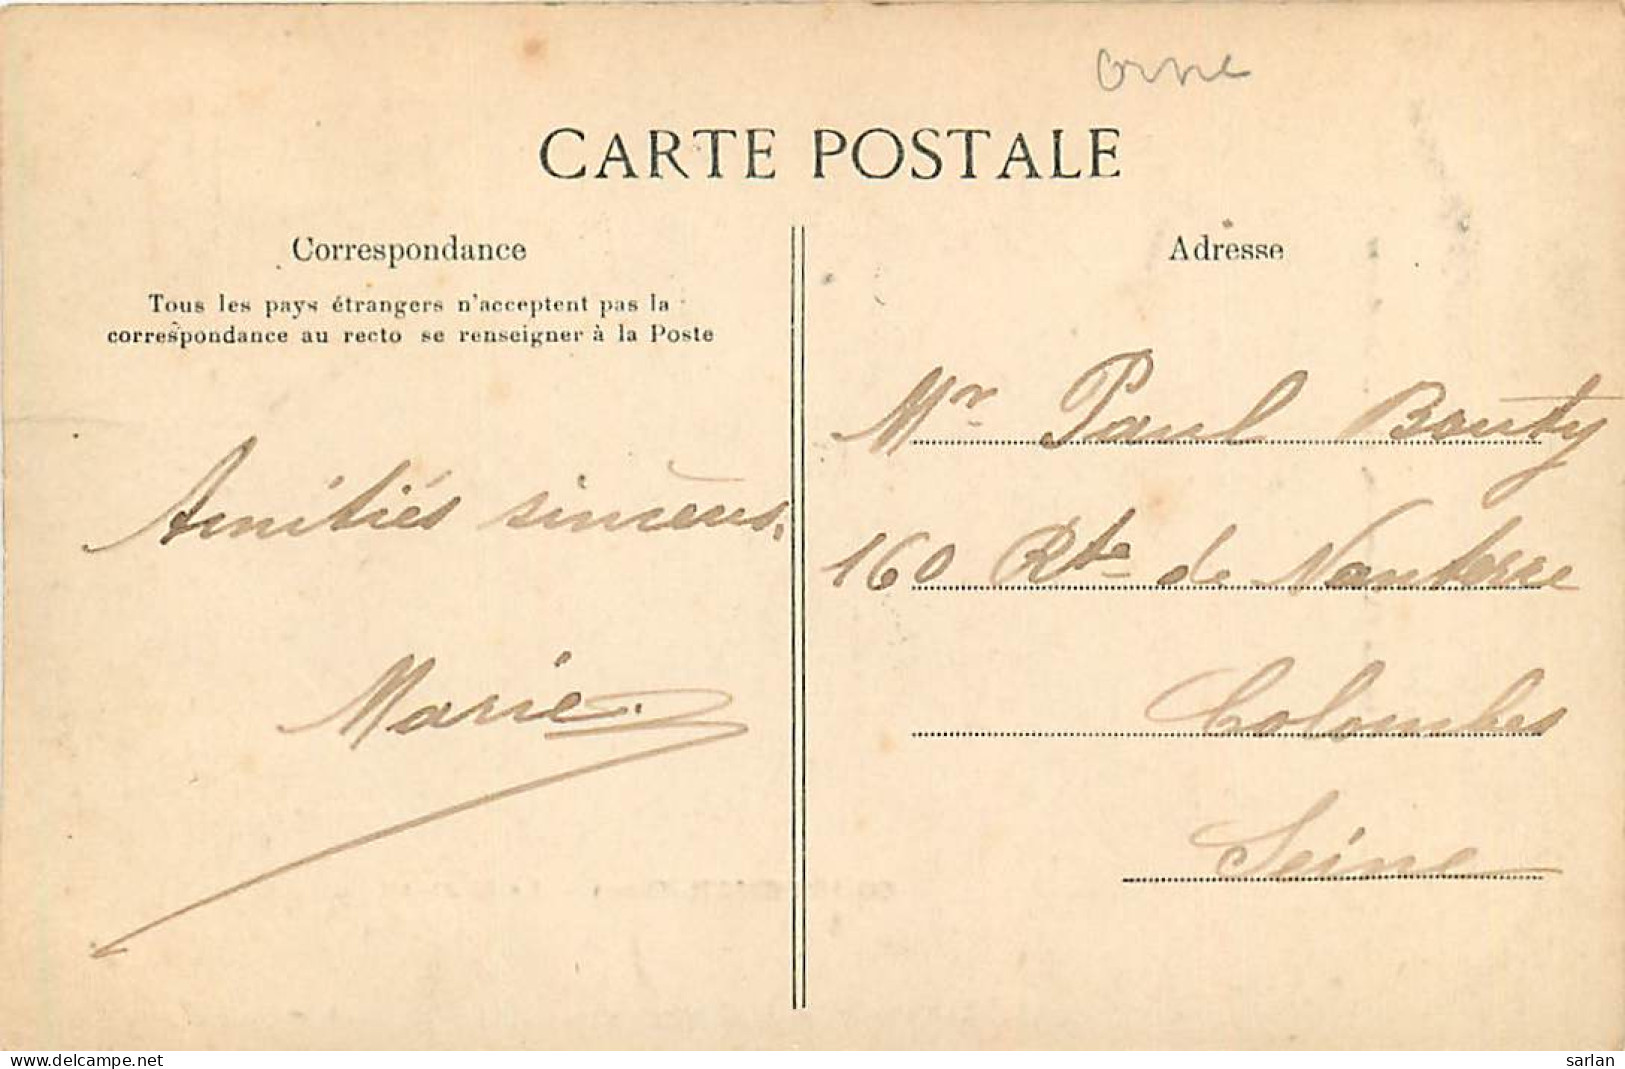 orne
CARTE POSTALE
Correspondance
Tous les pays étrangers n'acceptent pas la
correspondance au recto se renseigner à la Poste
Amitiés sincères.
Marie.
Adresse
Mr Paul Bouty
160 Rte de Nanterre
Colombes
Seine
www.delcampe.net
sarlan